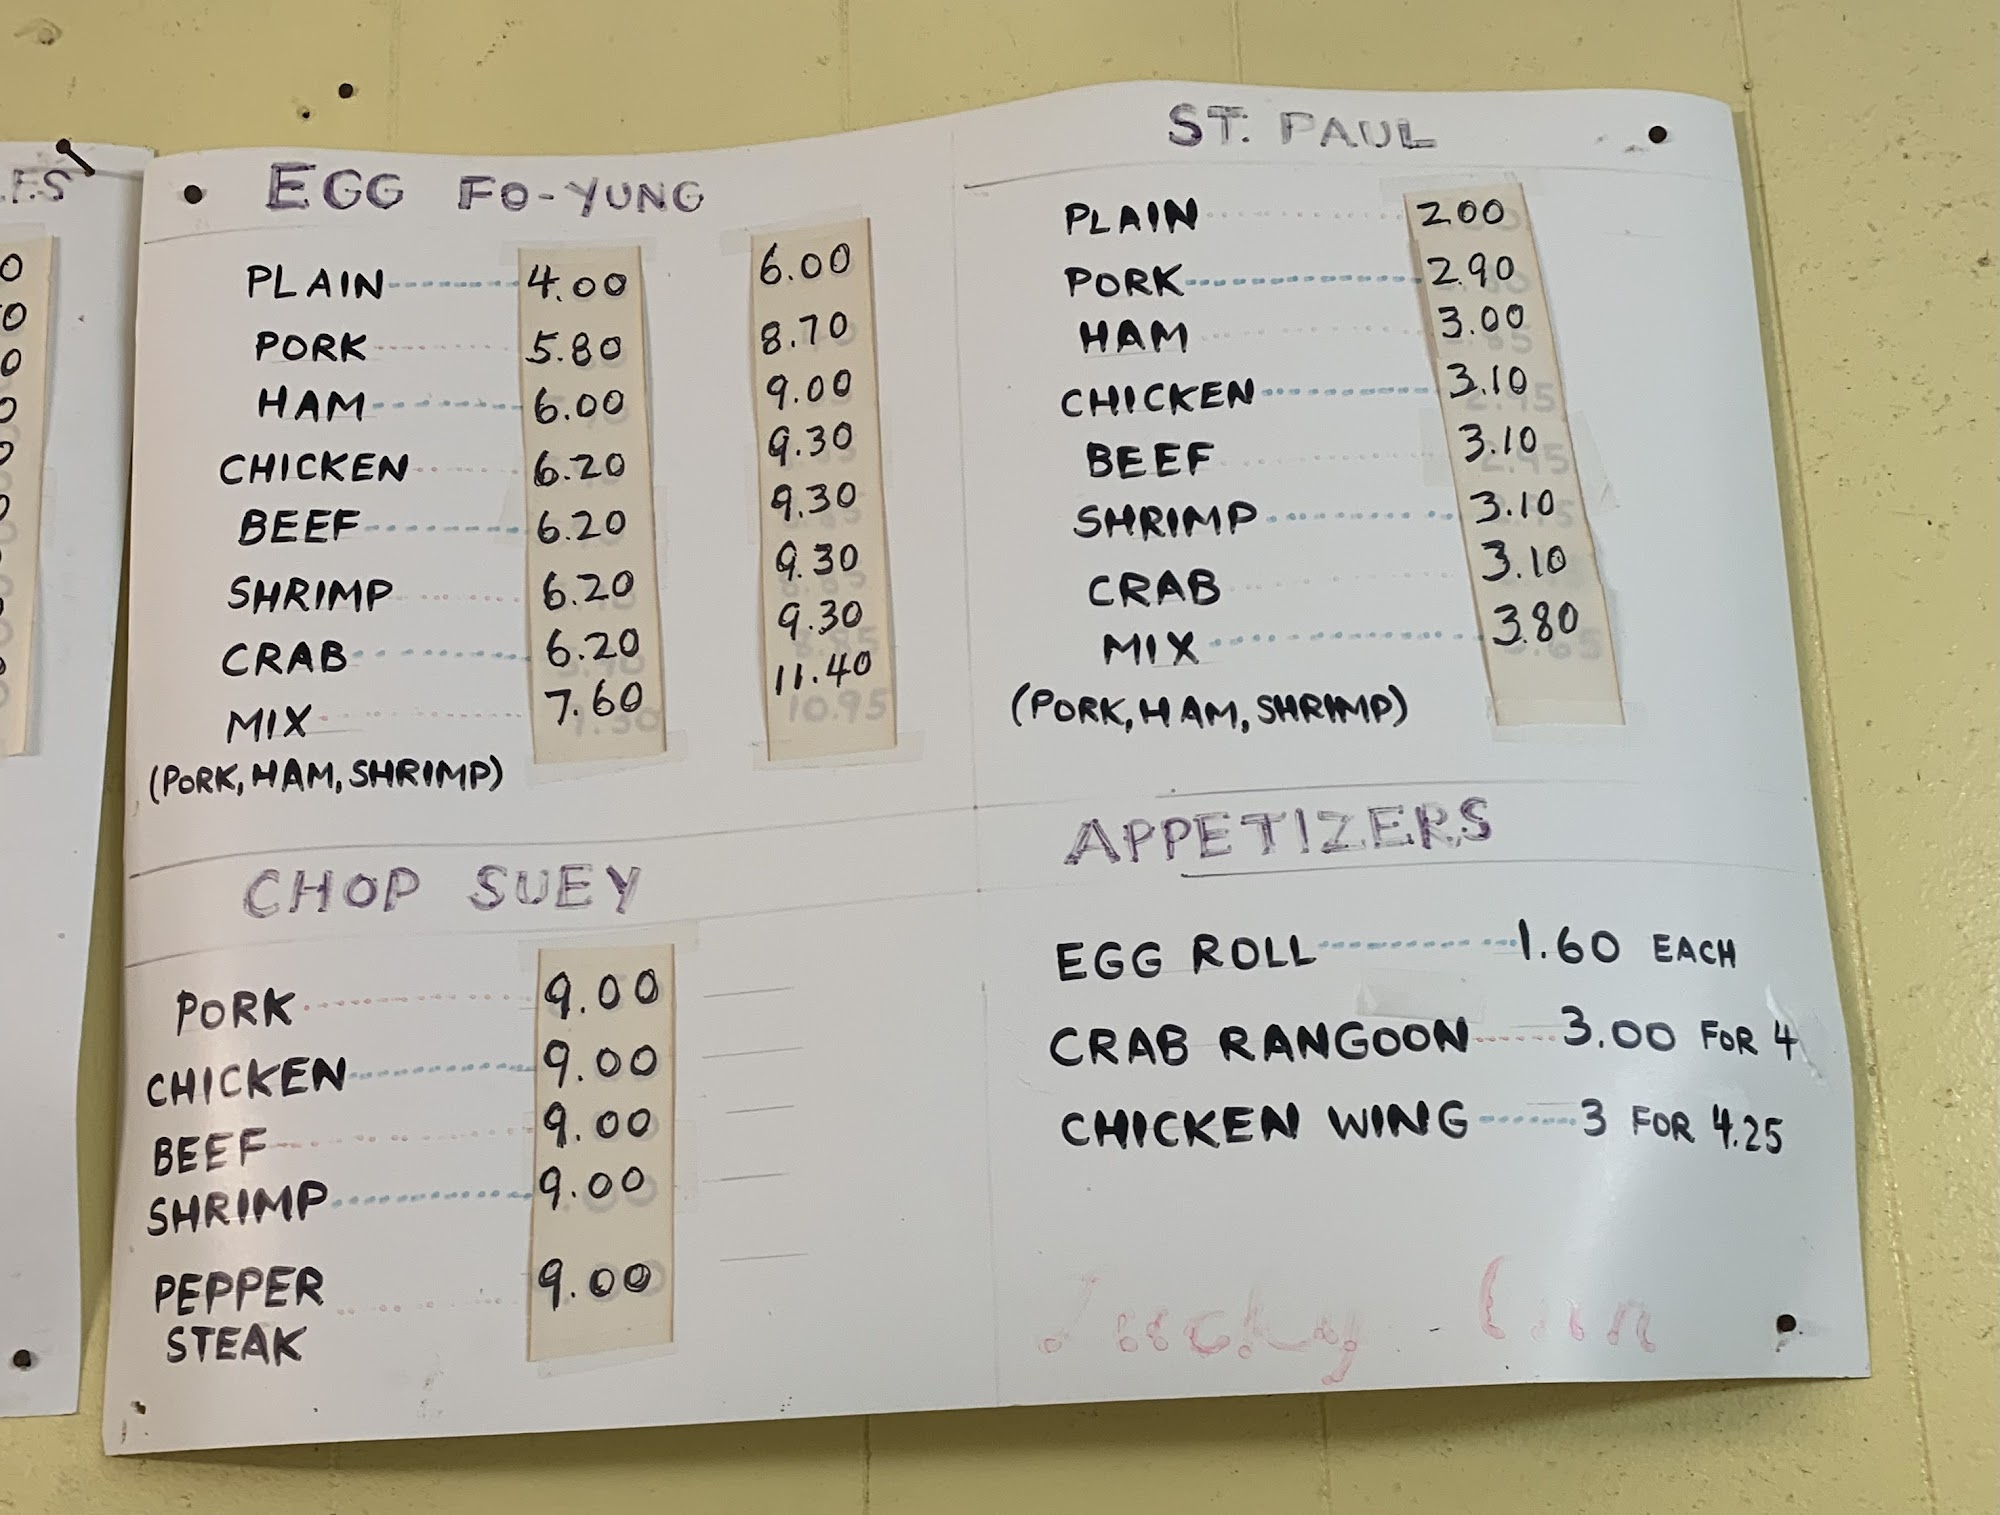 EGG FO-YUNG
PLAIN 4.00 6.00
PORK 5.80 8.70
HAM 6.00 9.00
CHICKEN 6.20 9.30
BEEF 6.20 9.30
SHRIMP 6.20 9.30
CRAB 6.20 9.30
MIX 7.60 11.40
(PORK, HAM, SHRIMP)
CHOP SUEY
PORK 9.00
CHICKEN 9.00
BEEF 9.00
SHRIMP 9.00
PEPPER 9.00
STEAK
ST. PAUL
PLAIN 2.00
PORK 2.90
HAM 3.00
CHICKEN 3.10
BEEF 3.10
SHRIMP 3.10
CRAB 3.10
MIX 3.80
(PORK, HAM, SHRIMP)
APPETIZERS
EGG ROLL 1.60 EACH
CRAB RANGOON 3.00 FOR 4
CHICKEN WING 3 FOR 4.25